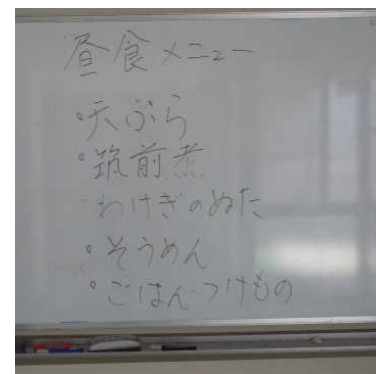 昼食メニュー
・天ぷら
・筑前煮
・わけぎのぬた
・そうめん
・ごはん つけもの